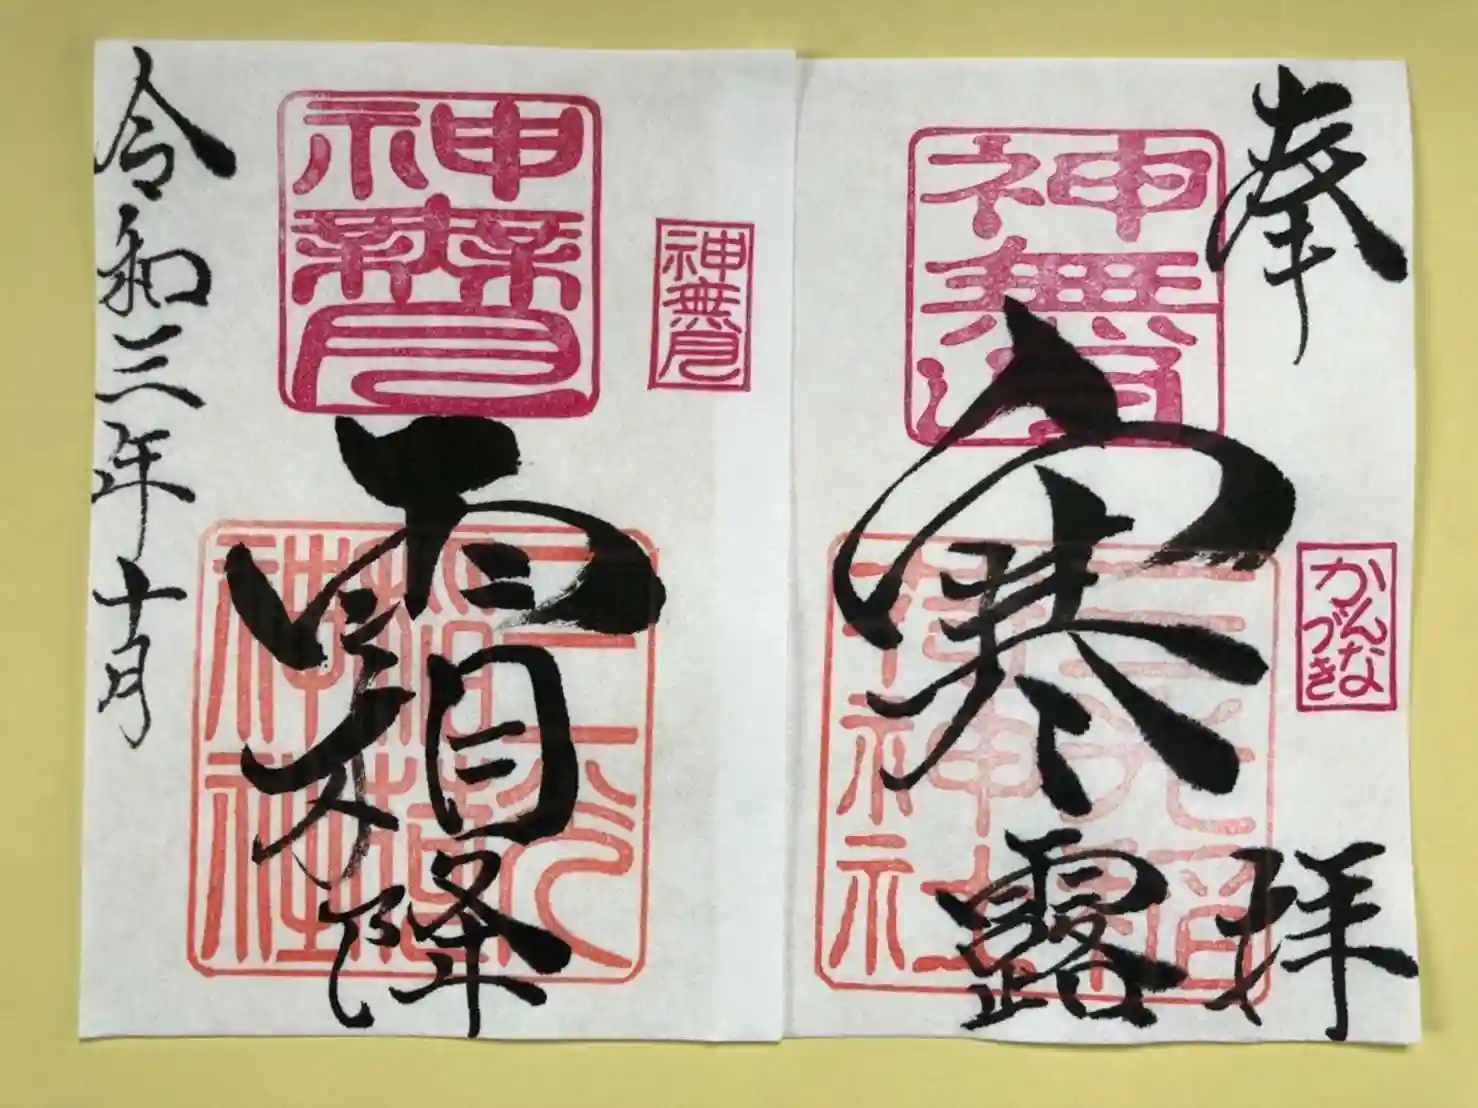 奉拝
寒露
神無月
かんな
づき
三光稲
荷神社
霜降
神無月
神無月
三光稲荷神社
令和三年十月